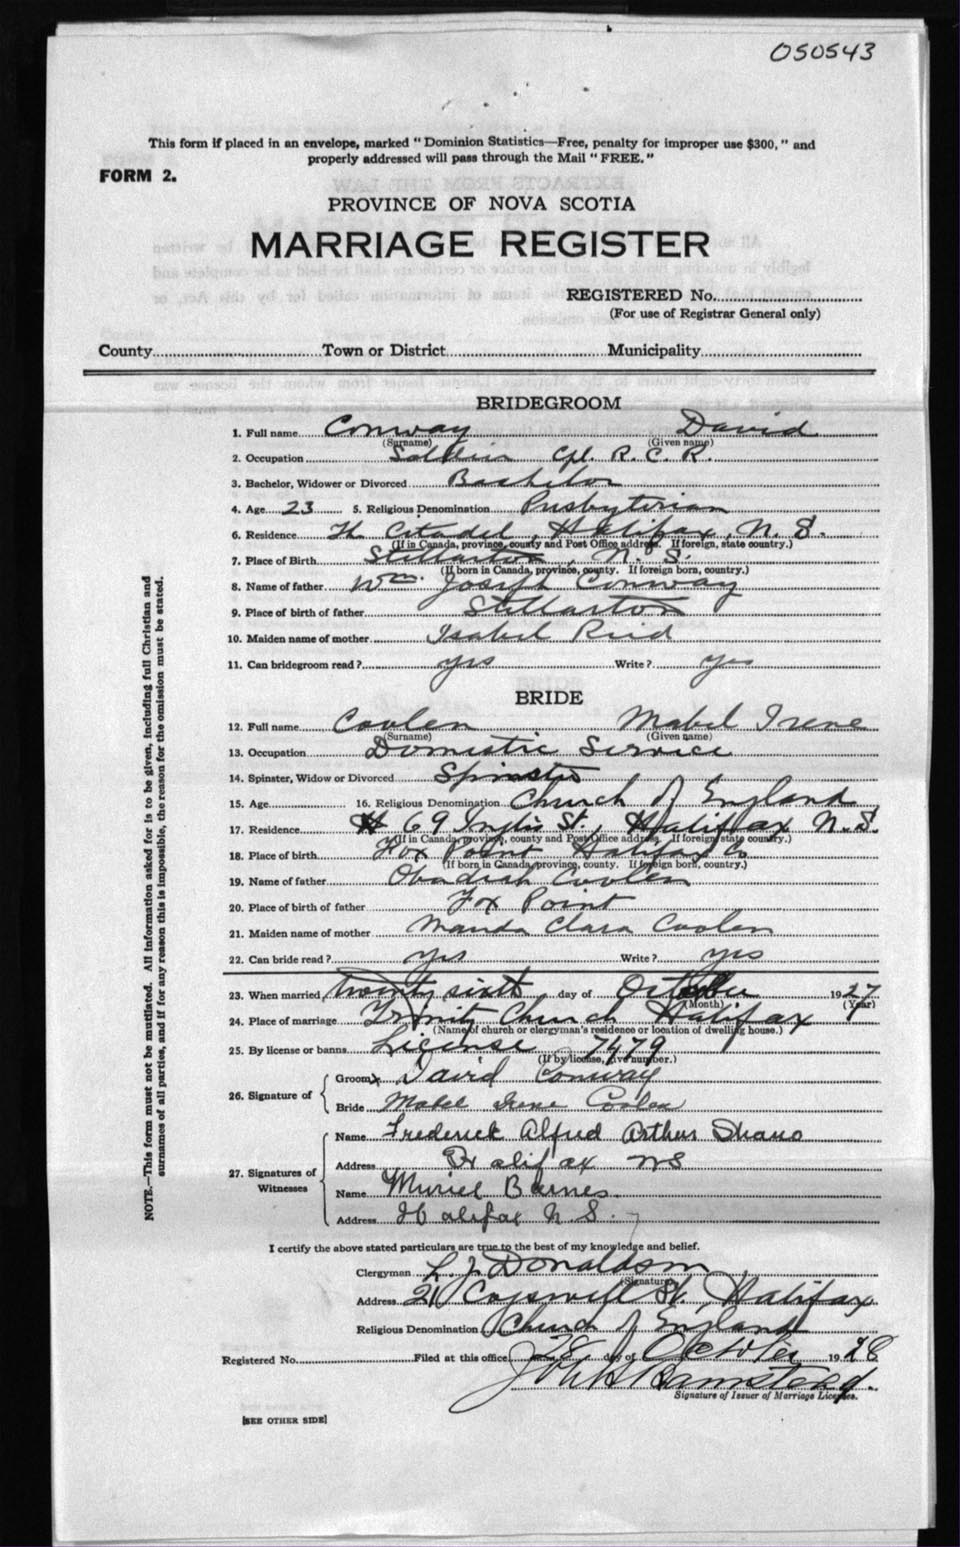 050543
This form if placed in an envelope, marked "Dominion Statistics—Free, penalty for improper use $300," and
properly addressed will pass through the Mail "FREE."
FORM 2.
PROVINCE OF NOVA SCOTIA
MARRIAGE REGISTER
REGISTERED No.
(For use of Registrar General only)
County Town or District Municipality
BRIDEGROOM
1. Full name Conway David
(Surname) (Given name)
2. Occupation Soldier Cpl. R.C.R.
3. Bachelor, Widower or Divorced Bachelor
4. Age 23 5. Religious Denomination Presbyterian
6. Residence The Citadel, Halifax, N.S.
(If in Canada, province, county and Post Office address. If foreign, state country.)
7. Place of Birth Stellarton, N.S.
(If born in Canada, province, county. If foreign born, country.)
8. Name of father Wm. Joseph Conway
9. Place of birth of father Stellarton
10. Maiden name of mother Isabel Reid
11. Can bridegroom read? yes Write? yes
BRIDE
12. Full name Coolen Mabel Irene
(Surname) (Given name)
13. Occupation Domestic Service
14. Spinster, Widow or Divorced Spinster
15. Age 16. Religious Denomination Church of England
17. Residence 69 Inglis St., Halifax N.S.
(If in Canada, province, county and Post Office address. If foreign state country.)
18. Place of birth Fox Point Halifax Co
(If born in Canada, province, county. If foreign born, country.)
19. Name of father Obadiah Coolen
20. Place of birth of father Fox Point
21. Maiden name of mother Manda Clara Coolen
22. Can bride read? yes Write? yes
23. When married twenty sixth day of October 1927
(Month) (Year)
24. Place of marriage Trinity Church Halifax
(Name of church or clergyman's residence or location of dwelling house.)
25. By license or banns License 7479
(If by license, give number.)
26. Signature of
Groom x David Conway
Bride Mabel Irene Coolen
27. Signatures of Witnesses
Name Frederick Alfred Arthur
Address Halifax NS
Name Muriel Barnes.
Address Halifax N.S.
I certify the above stated particulars are true to the best of my knowledge and belief.
Clergyman L. J. Donaldson
(Signature)
Address 21 Cogswell St., Halifax.
Religious Denomination Church of England
Registered No. Filed at this office 28 day of October 1928
Signature of Issuer of Marriage Licenses.
[SEE OTHER SIDE]
NOTE.—This form must not be mutilated. All information asked for is to be given, including full Christian and
surnames of all parties, and if for any reason this is impossible, the reason for the omission must be stated.